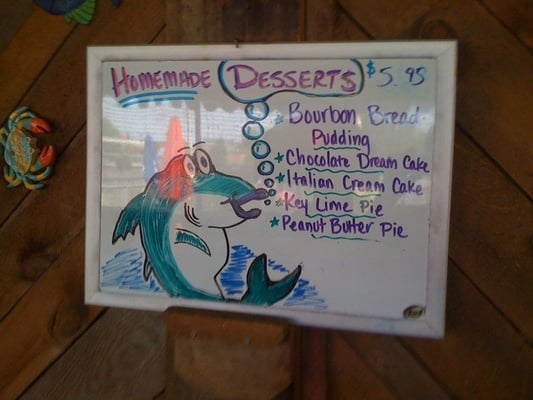 Homemade Desserts $5.95
Bourbon Bread
Pudding
Chocolate Dream Cake
Italian Cream Cake
Key Lime Pie
Peanut Butter Pie